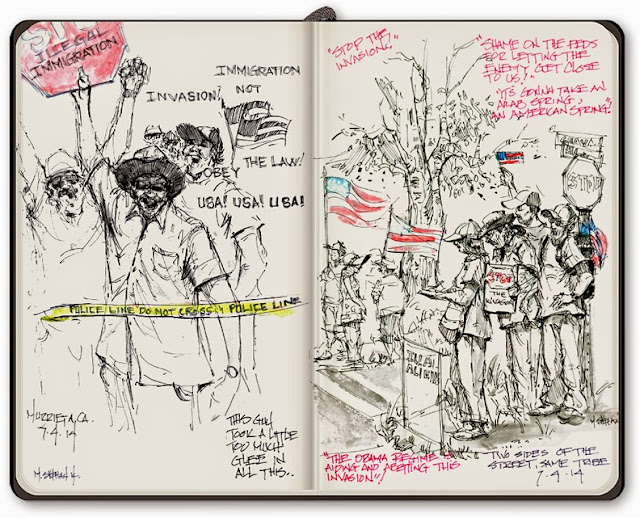 STOP
ILLEGAL
IMMIGRATION
INVASION!
IMMIGRATION
NOT
OBEY
THE LAW!
USA! USA! USA!
POLICE LINE DO NOT CROSS POLICE LINE
MURRIETA, CA.
7.4.14
THIS GUY
TOOK A LITTLE
TOO MUCH
GLEE IN
ALL THIS..
"STOP THE
INVASION!"
"SHAME ON THE FEDS
FOR LETTING THE
ENEMY GET CLOSE
TO US!"
"IT'S GONNA TAKE AN
ARAB SPRING,
AN AMERICAN SPRING."
STOP
STOP
THE
INVASION
ILLEGAL
ALIENS
"THE OBAMA REGIME IS
AIDING AND ABETTING THIS
INVASION"!
TWO SIDES OF THE
STREET, SAME TRIBE
7.4.14